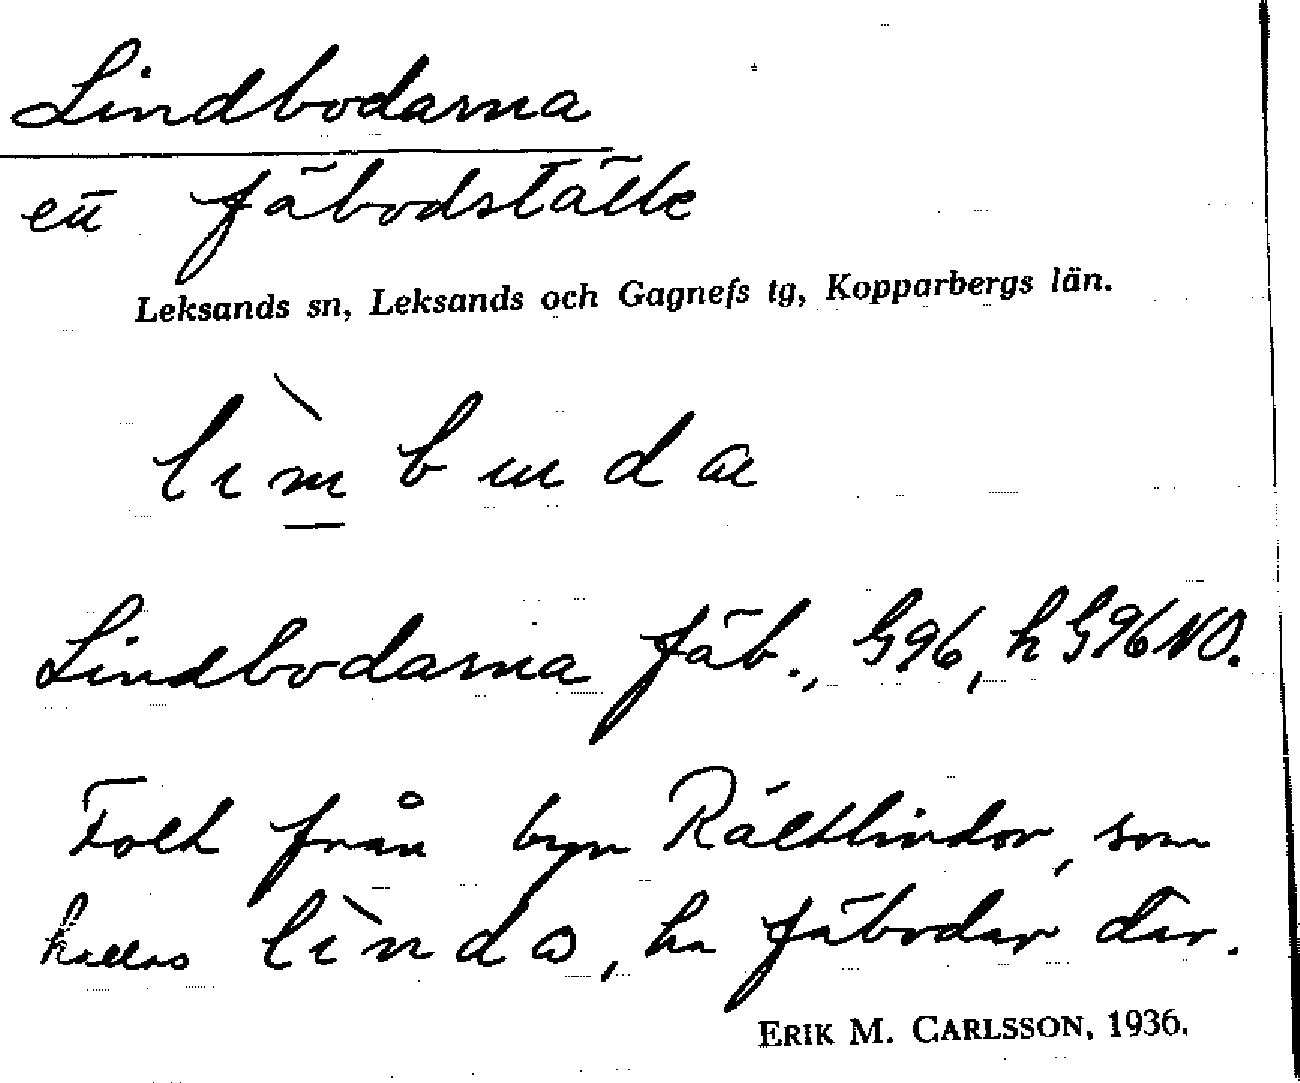 Lindbodarna
ett fäbodställe
Leksands sn, Leksands och Gagnefs tg, Kopparbergs län.
lìm buda
Lindbodarna fäb., G96, h G96NO.
Folk från byn Rältlindor, som
kallas lìndo, ha fäbodar där.
ERIK M. CARLSSON, 1936.